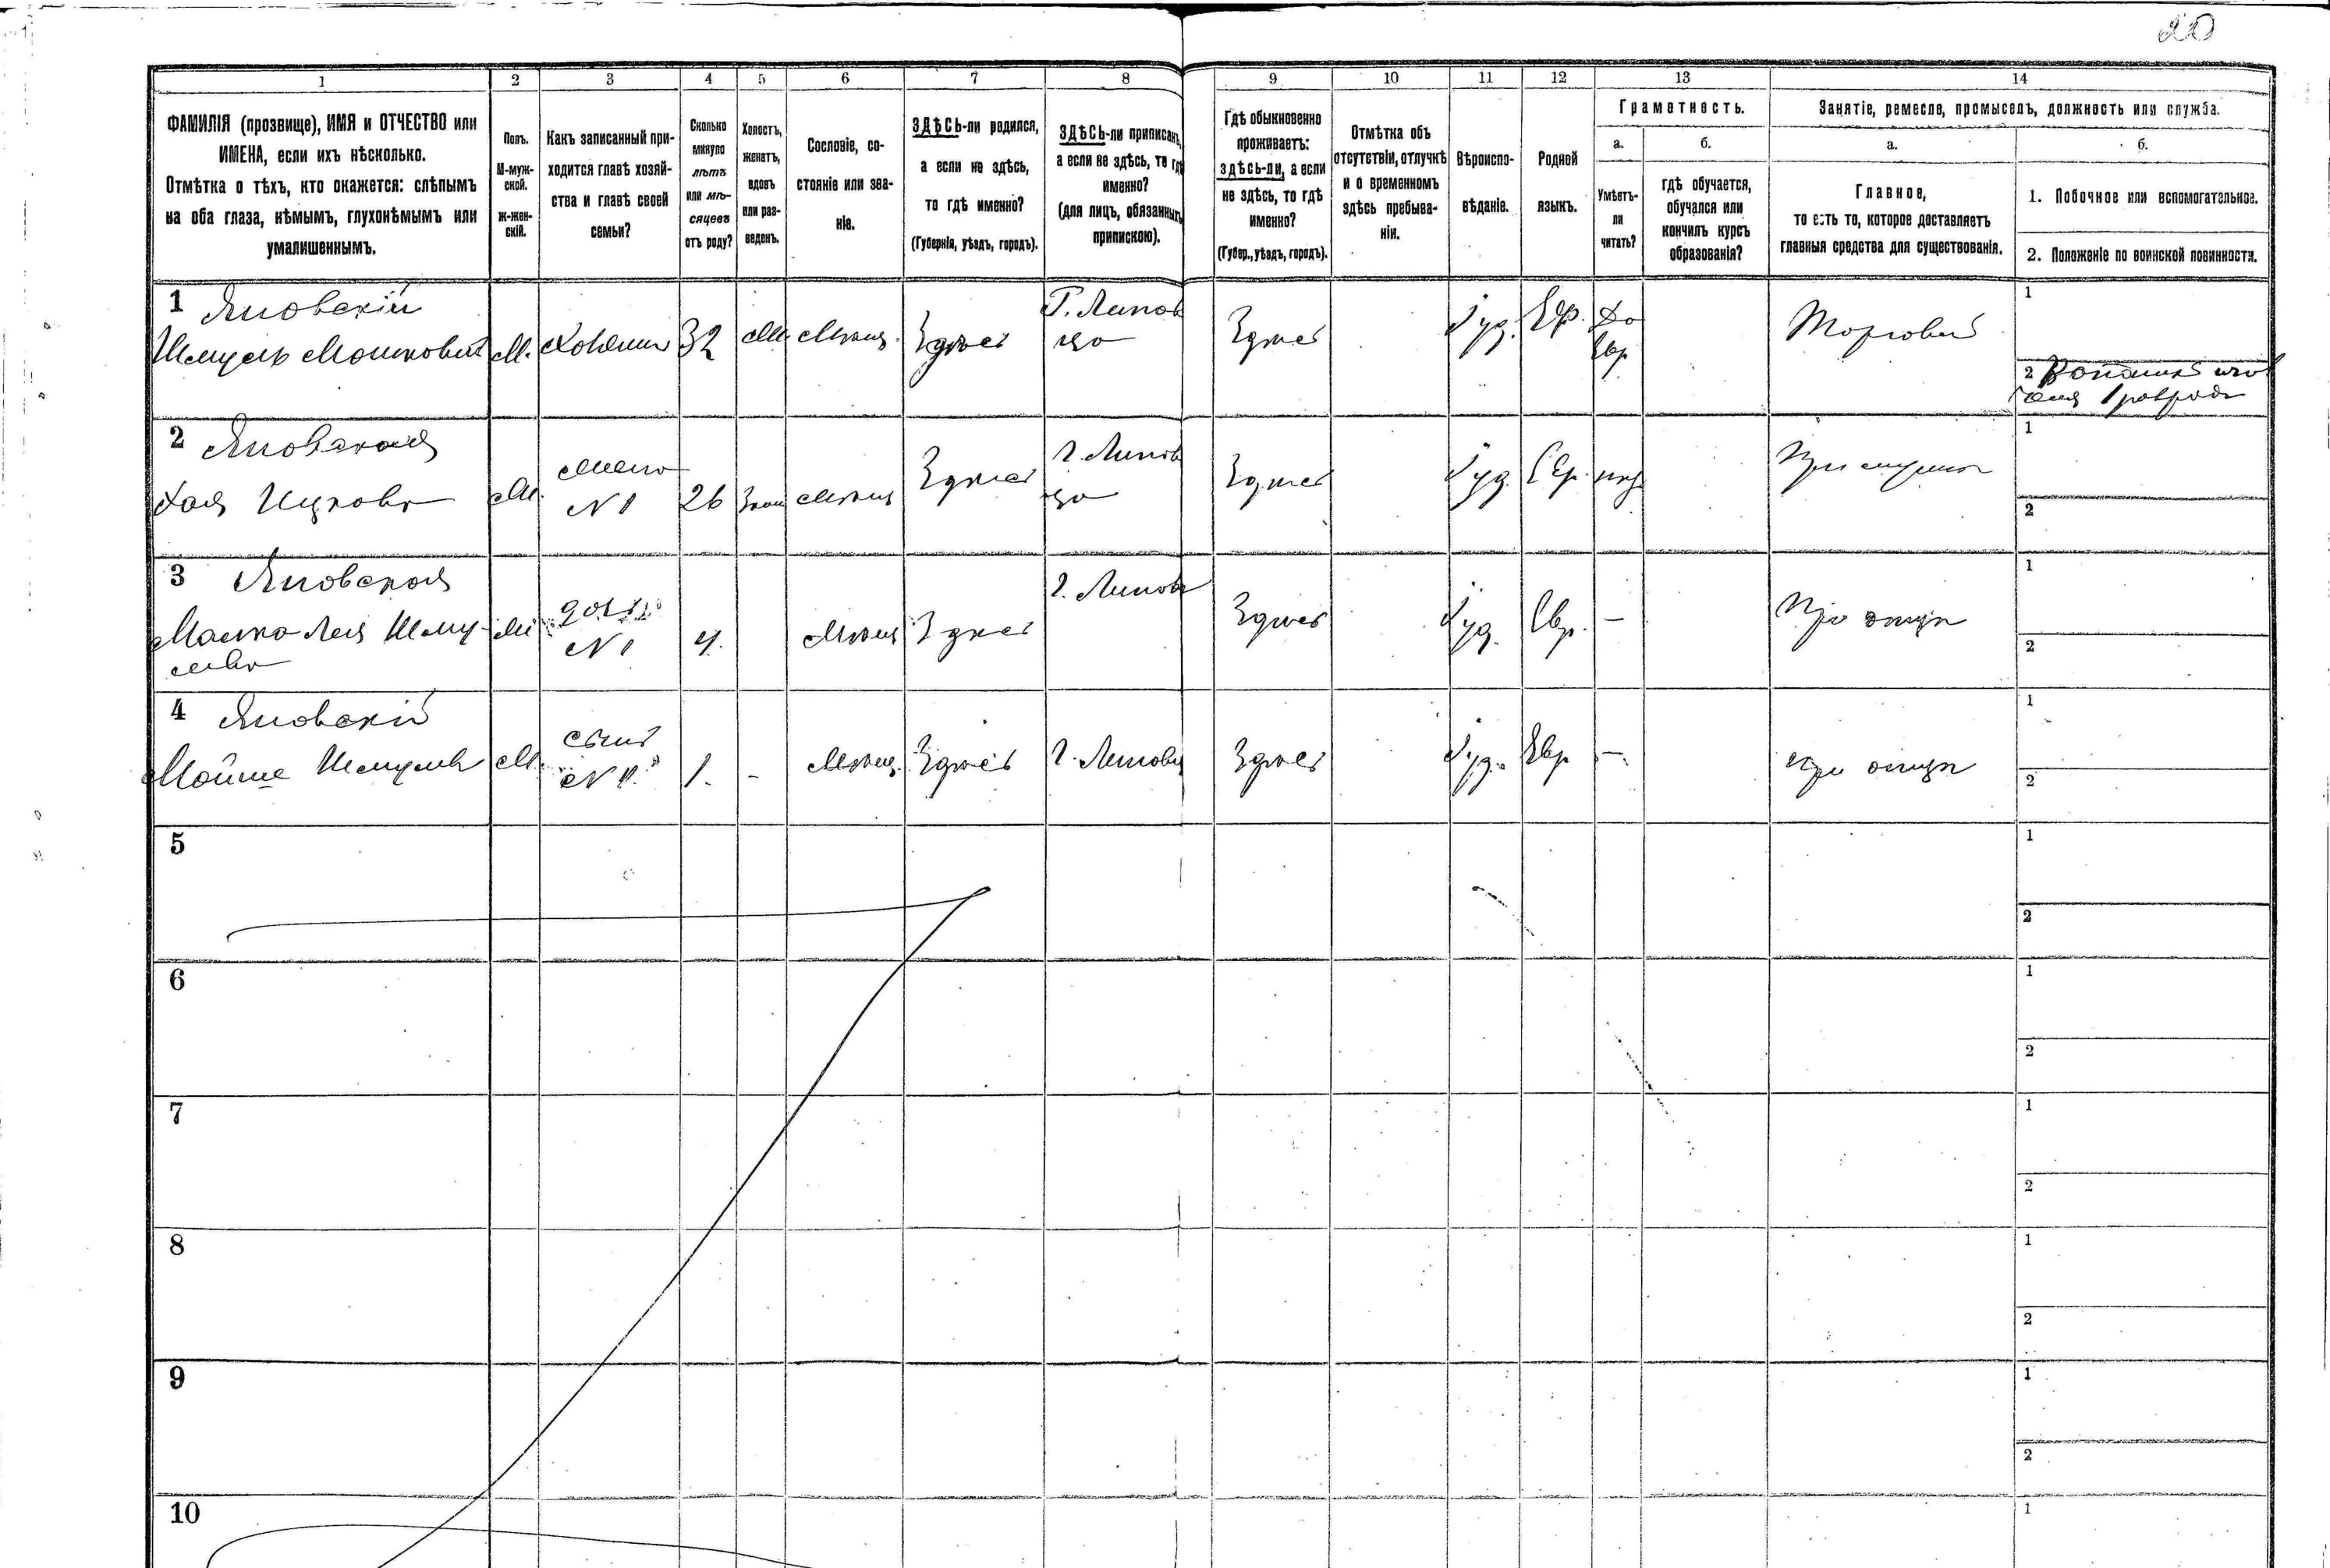 20
1 2 3 4 5 6 7 8 9 10 11 12 13 14
ФАМИЛІЯ (прозвище), ИМЯ и ОТЧЕСТВО или
ИМЕНА, если ихъ нѣсколько.
Отмѣтка о тѣхъ, кто окажется: слѣпымъ
на оба глаза, нѣмымъ, глухонѣмымъ или
умалишеннымъ.
Полъ.
М-муж-
ской.
ж-жен-
скій.
Какъ записанный при-
ходится главѣ хозяй-
ства и главѣ своей
семьи?
Сколько
минуло
лѣтъ
или мѣ-
сяцевъ
отъ роду?
Холостъ,
женатъ,
вдовъ
или раз-
веденъ.
Сословіе, со-
стояніе или зва-
ніе.
ЗДѢСЬ-ли родился,
а если не здѣсь,
то гдѣ именно?
(Губернія, уѣздъ, городъ).
ЗДѢСЬ-ли приписанъ,
а если не здѣсь, то гдѣ
именно?
(для лицъ, обязанныхъ
припискою).
Гдѣ обыкновенно
проживаетъ:
здѣсь-ли, а если
не здѣсь, то гдѣ
именно?
(Губер., уѣздъ, городъ).
Отмѣтка объ
отсутствіи, отлучкѣ
и о временномъ
здѣсь пребыва-
ніи.
Вѣроиспо-
вѣданіе.
Родной
языкъ.
Грамотность.
а.
Умѣетъ-
ли
читать?
б.
гдѣ обучается,
обучался или
кончилъ курсъ
образованія?
Занятіе, ремесло, промыселъ, должность или служба.
а.
Главное,
то есть то, которое доставляетъ
главныя средства для существованія.
б.
1. Побочное или вспомогательное.
2. Положеніе по воинской повинности.
1 Яновскій
Шмуль Мошковъ М. Хозяин 32 Мѣщ. Здѣсь Г. Липов Здѣсь Іуд. Евр. До
Евр
1
2
2 Яновская
Хая Ицкова М. жена
№ 1 26 Мѣщ Здѣсь г. Липов Здѣсь Іуд Евр. При мужѣ
1
2
3 Яновская
Малка Лея Шму-
лева М дочь
№ 1 4. Мѣщ Здѣсь г. Липов Здѣсь Іуд. Евр. — При отцѣ
1
2
4 Яновскій
Мойше Шмулев М. сынъ
№ 1. 1. - Мѣщ. Здѣсь г. Липовц Здѣсь Іуд. Евр — при отцѣ
1
2
5
1
2
6
1
2
7
1
2
8
1
2
9
1
2
10
1